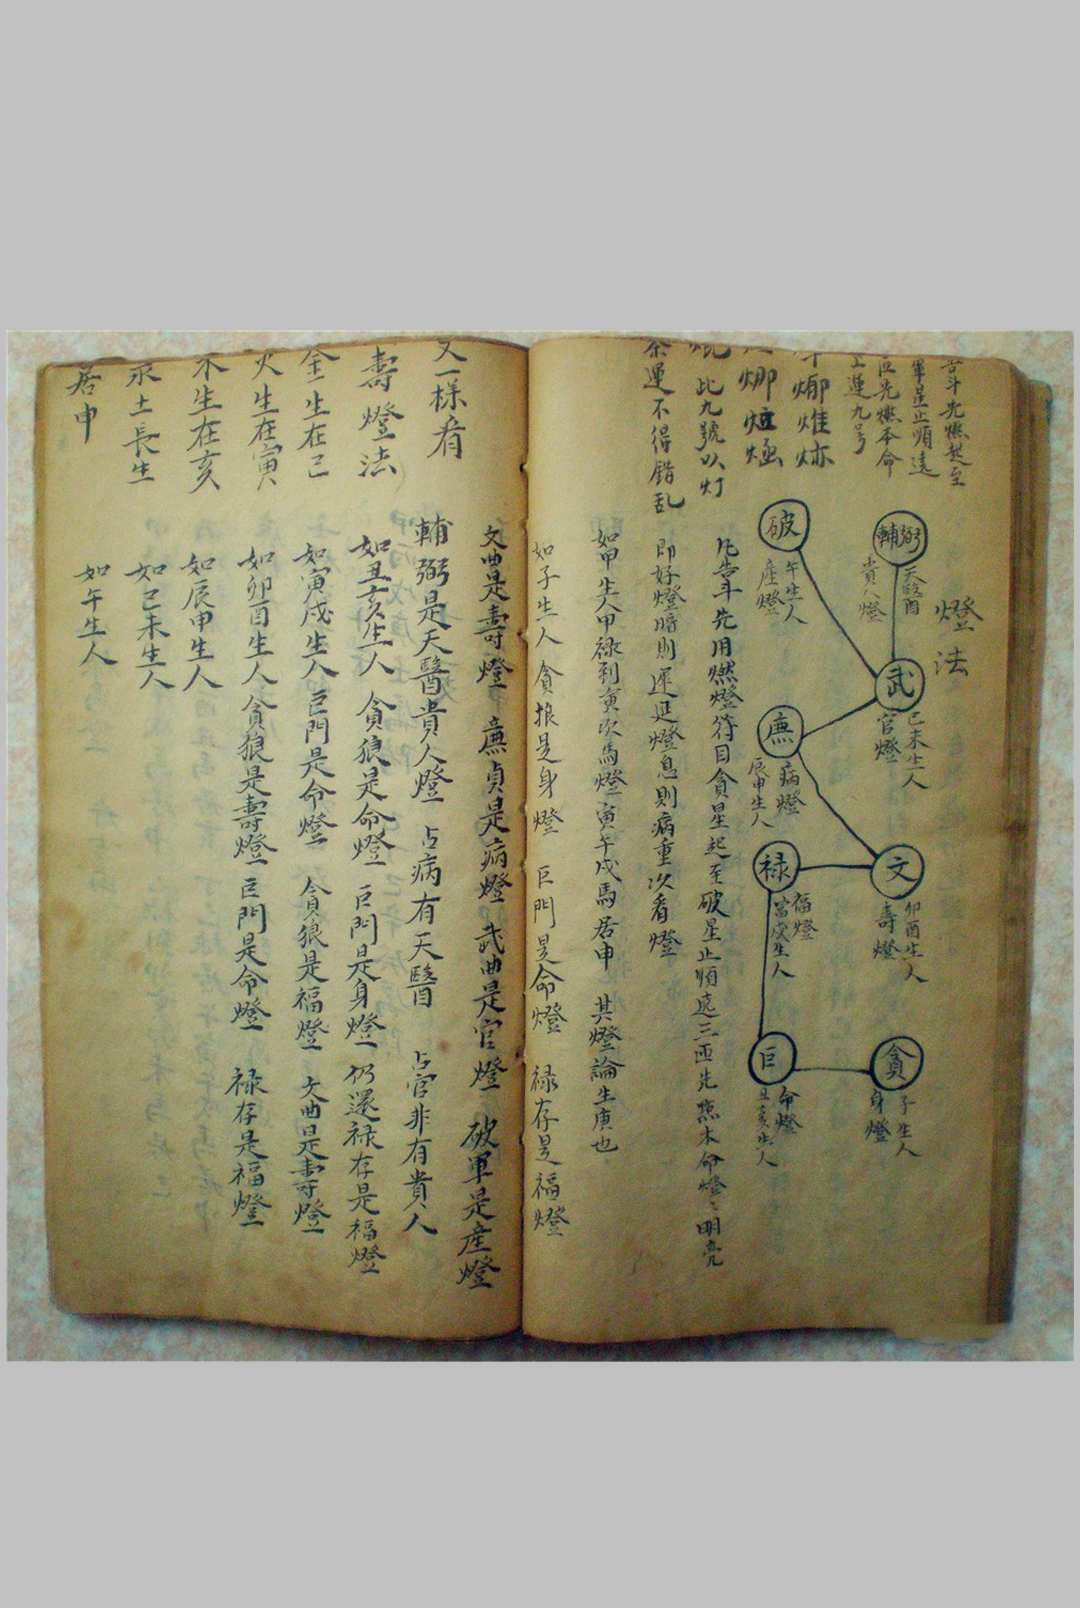 燈法
告斗先燃起至
軍星止順遶
匝先燃本命
上運九号
輔弼
天醫
貴人燈
武
巳未生人
官燈
破
午生人
產燈
廉
病燈
辰申生人
文
卯酉生人
壽燈
禄
福燈
寅戌生人
巨
命燈
丑亥生人
貪
子生人
身燈
此九號以灯
余運不得錯乱
凡告斗先用燃燈符目貪星起至破星止順遶三匝先燕本命燈〻明亮
即好燈暗則遲延燈息則病重次看燈
如甲生人甲禄到寅次馬燈寅午戌馬居申 其燈論生庚也
如子生人 貪狼是身燈 巨門是命燈 禄存是福燈
文曲是壽燈 廉貞是病燈 武曲是官燈 破軍是產燈
輔弼是天醫貴人燈 占病有天醫 占官非有貴人
如丑亥生人 貪狼是命燈 巨門是身燈 仍還禄存是福燈
如寅戌生人巨門是命燈 貪狼是福燈 文曲是壽燈
如卯酉生人貪狼是壽燈 巨門是命燈 禄存是福燈
如辰申生人
如巳未生人
如午生人
又一樣看
壽燈法
金生在巳
火生在寅
木生在亥
水土長生
居申